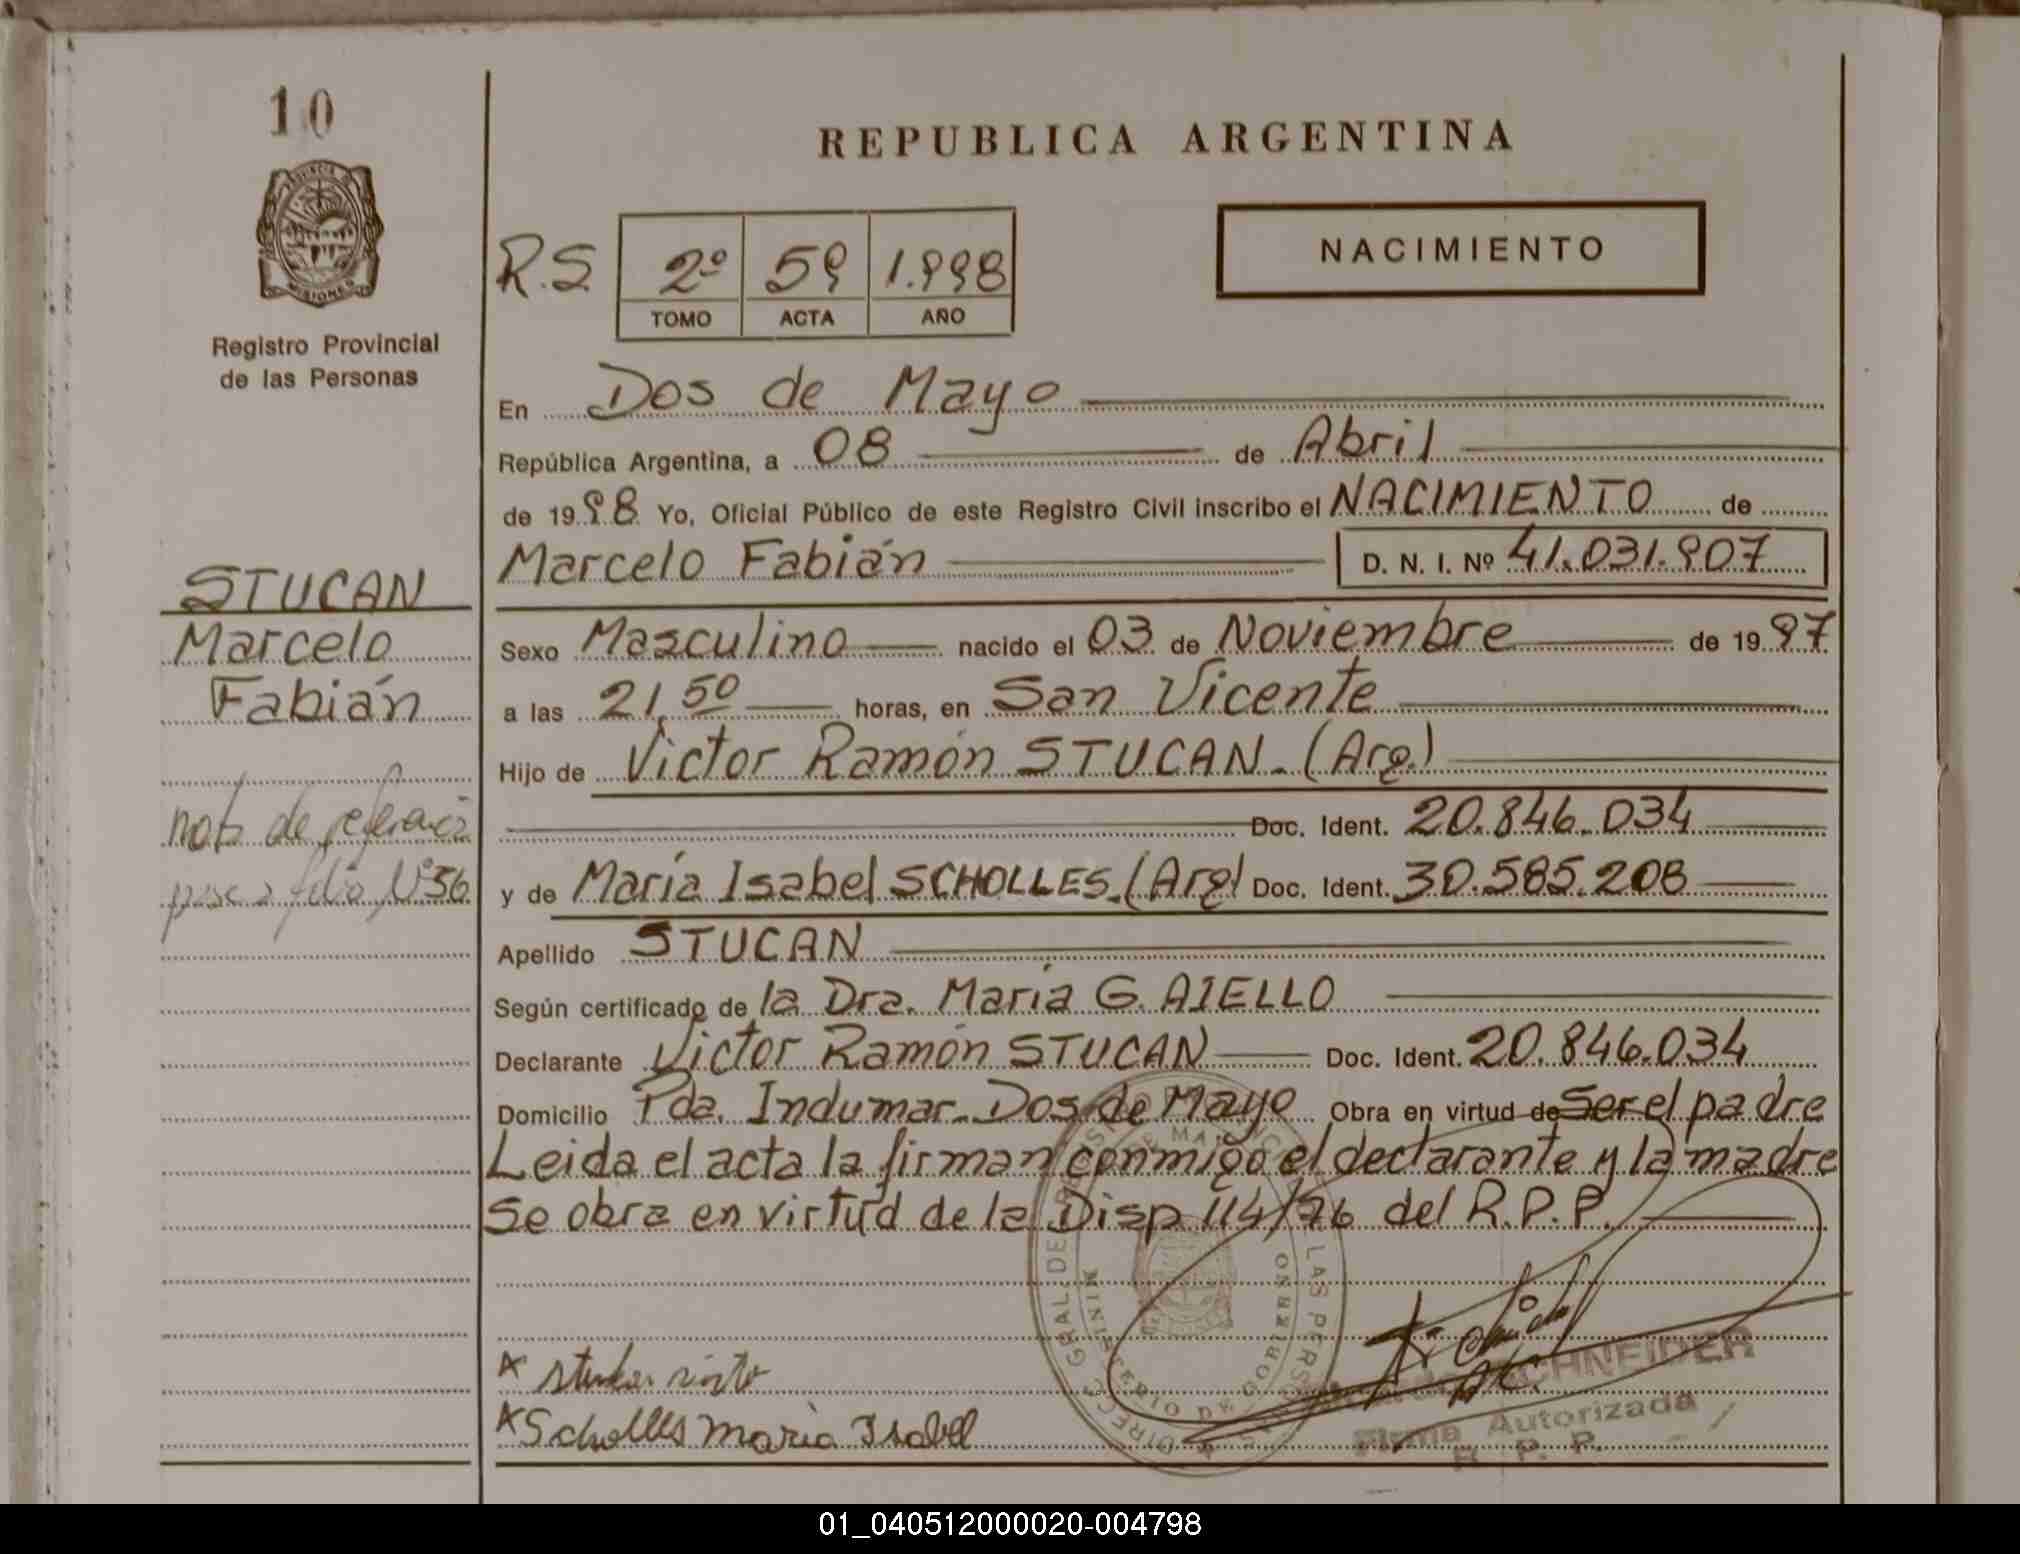 10
REPUBLICA ARGENTINA
PROVINCIA DE
MISIONES
Registro Provincial
de las Personas
NACIMIENTO
R.S. 2º 59 1.998
TOMO ACTA AÑO
En Dos de Mayo
República Argentina, a 08 de Abril
de 1998 Yo, Oficial Público de este Registro Civil inscribo el NACIMIENTO de
Marcelo Fabián D. N. I. Nº 41.031.907
STUCAN
Marcelo
Fabián
nota de referencia
pase a folio Nº 56
Sexo Masculino nacido el 03 de Noviembre de 1997
a las 21,50 horas, en San Vicente
Hijo de Victor Ramón STUCAN-(Arg.)
Doc. Ident. 20.846.034
y de María Isabel SCHOLLES-(Arg) Doc. Ident. 30.585.208
Apellido STUCAN
Según certificado de la Dra. María G. AIELLO
Declarante Victor Ramón STUCAN Doc. Ident. 20.846.034
Domicilio Pda. Indumar-Dos de Mayo Obra en virtud de Ser el padre
Leida el acta la firman conmigo el declarante y la madre
Se obra en virtud de la Disp 114/76 del R.P.P.
Scholles maria Isabel
SCHNEIDER
Firma Autorizada
R. P. P.
01_040512000020-004798